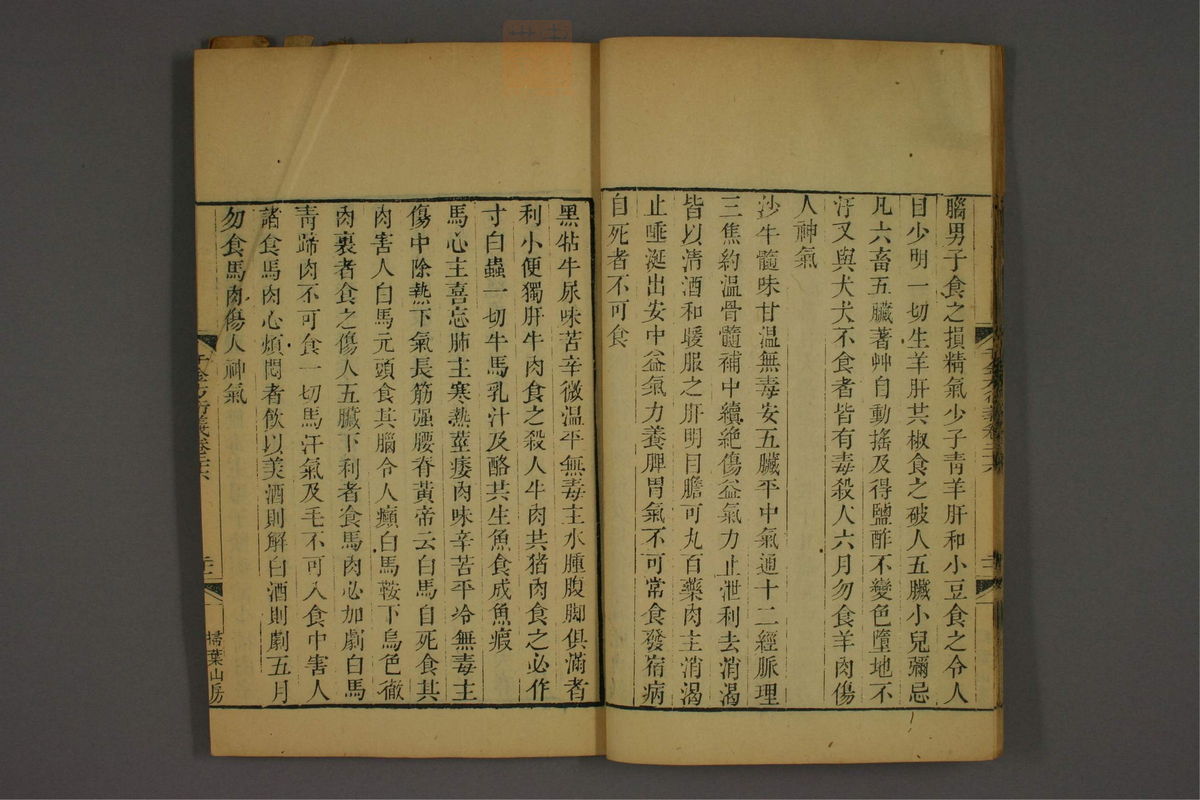 腦男子食之損精氣少子青羊肝和小豆食之令人
目少明一切生羊肝共椒食之破人五臟小兒彌忌
凡六畜五臟著艸自動搖及得鹽酢不變色墮地不
汙又與犬犬不食者皆有毒殺人六月勿食羊肉傷
人神氣
沙牛髓味甘溫無毒安五臟平中氣通十二經脈理
三焦約溫骨髓補中續絕傷益氣力止泄利去消渴
皆以清酒和暖服之肝明目膽可丸百藥肉主消渴
止唾涎出安中益氣力養脾胃氣不可常食發宿病
自死者不可食
黑牯牛尿味苦辛微溫平無毒主水腫腹脚俱滿者
利小便獨肝牛肉食之殺人牛肉共猪肉食之必作
寸白蟲一切牛馬乳汁及酪共生魚食成魚瘕
馬心主喜忘肺主寒熱莖痿肉味辛苦平冷無毒主
傷中除熱下氣長筋强腰脊黃帝云白馬自死食其
肉害人白馬元頭食其腦令人癲白馬鞍下烏色徹
肉裏者食之傷人五臟下利者食馬肉必加劇白馬
青蹄肉不可食一切馬汗氣及毛不可入食中害人
諸食馬肉心煩悶者飲以美酒則解白酒則劇五月
勿食馬肉傷人神氣
千金方衍義卷二十六
掃葉山房